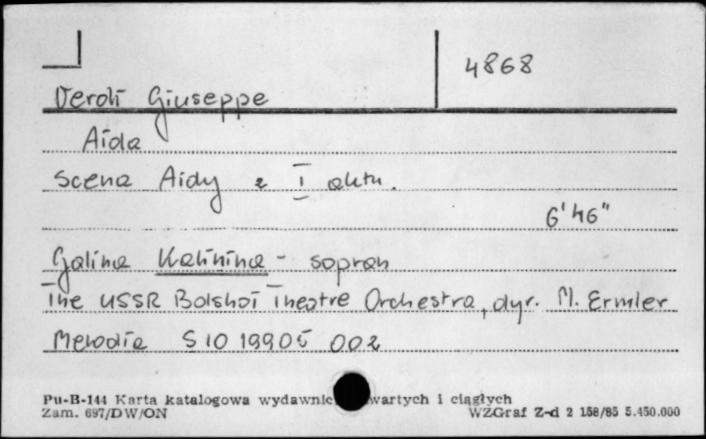 4868
Verdi Giuseppe
Aida
Scena Aidy z I aktu.
6'46"
Galina Kalinina - sopran
The USSR Bolshoi Theatre Orchestra, dyr. M. Ermler
Melodia S10 19905 002
Pu-B-144 Karta katalogowa wydawnic wartych i ciągłych
Zam. 697/DW/ON WZGraf Z-d 2 158/85 5.450.000